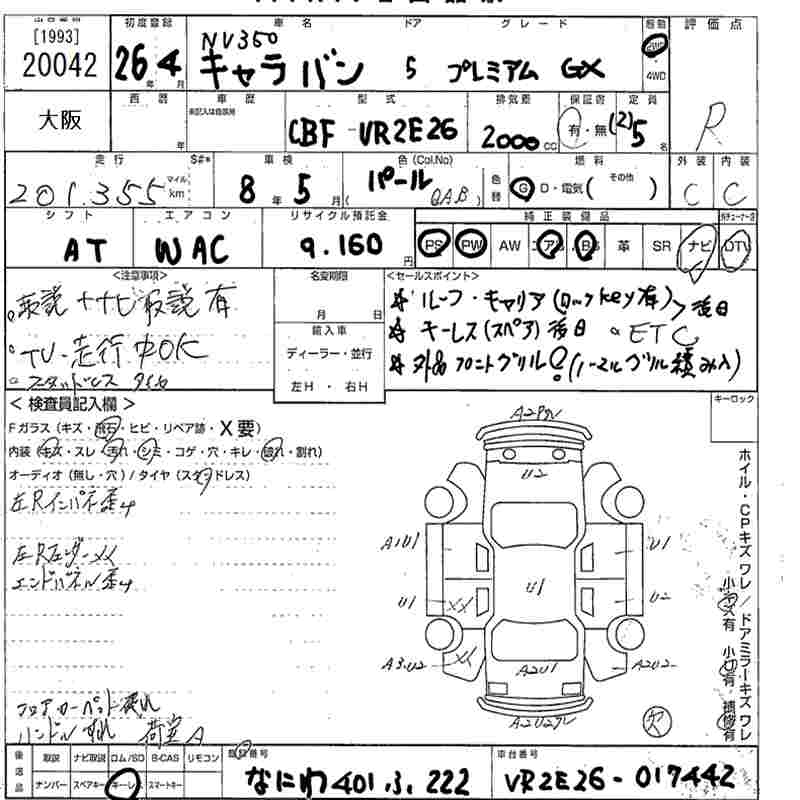 [1993]
20042
初度登録
26年4月
車名
NV350
キャラバン
ドア
5
グレード
プレミアム GX
駆動
2WD
4WD
評価点
R
大阪
西暦
年
月
車歴
未記入は自家用
型式
CBF-VR2E26
排気量
2000cc
保証書
有・無
定員
(2)5名
走行
201,355
マイル
km
S#*
車検
8年5月
色(Col.No)
パール
(QAB)
色替
燃料
G D・電気( その他 )
外装
C
内装
C
シフト
AT
エアコン
WAC
リサイクル預託金
9.160円
純正装備品
PS PW AW エアB ABS 革 SR ナビ DTV
<注意事項>
。取説+ナビ取説 有
・TV-走行中OK
。スタッドレス タイヤ
名変期限
月 日
輸入車
ディーラー・並行
左H・右H
<セールスポイント>
☆ ルーフ・キャリア(ロックkey有)>後日
☆ キーレス(スペア)後日 。ETC
☆ 外品フロントグリル!(ノーマルグリル積み入)
キーロック
<検査員記入欄>
Fガラス(キズ・飛石・ヒビ・リペア跡・X要)
内装(キズ・スレ・汚れ・シミ・コゲ・穴・キレ・破れ・割れ)
オーディオ(無し・穴)/タイヤ(スタッドレス)
左Rインパネ歪ミ
左RフェンダーXX
エンドパネル歪ミ
フロアカーペット破れ
ハンドルすれ 荷室A
U2
A1U1
U1
U1
U1
XX
U2
A3U2
XX
A2U1
A2U2
欠
ホイル・CPキズ ワレ/ドアミラーキズ ワレ
小キズ有 小凹有・補修有
後送品
取説
ナビ取説
ロム/SD
B-CAS
リモコン
ナンバー
スペアキー
キーレス
スマートキー
登録番号
なにわ401.す.222
車台番号
VR2E26-017442